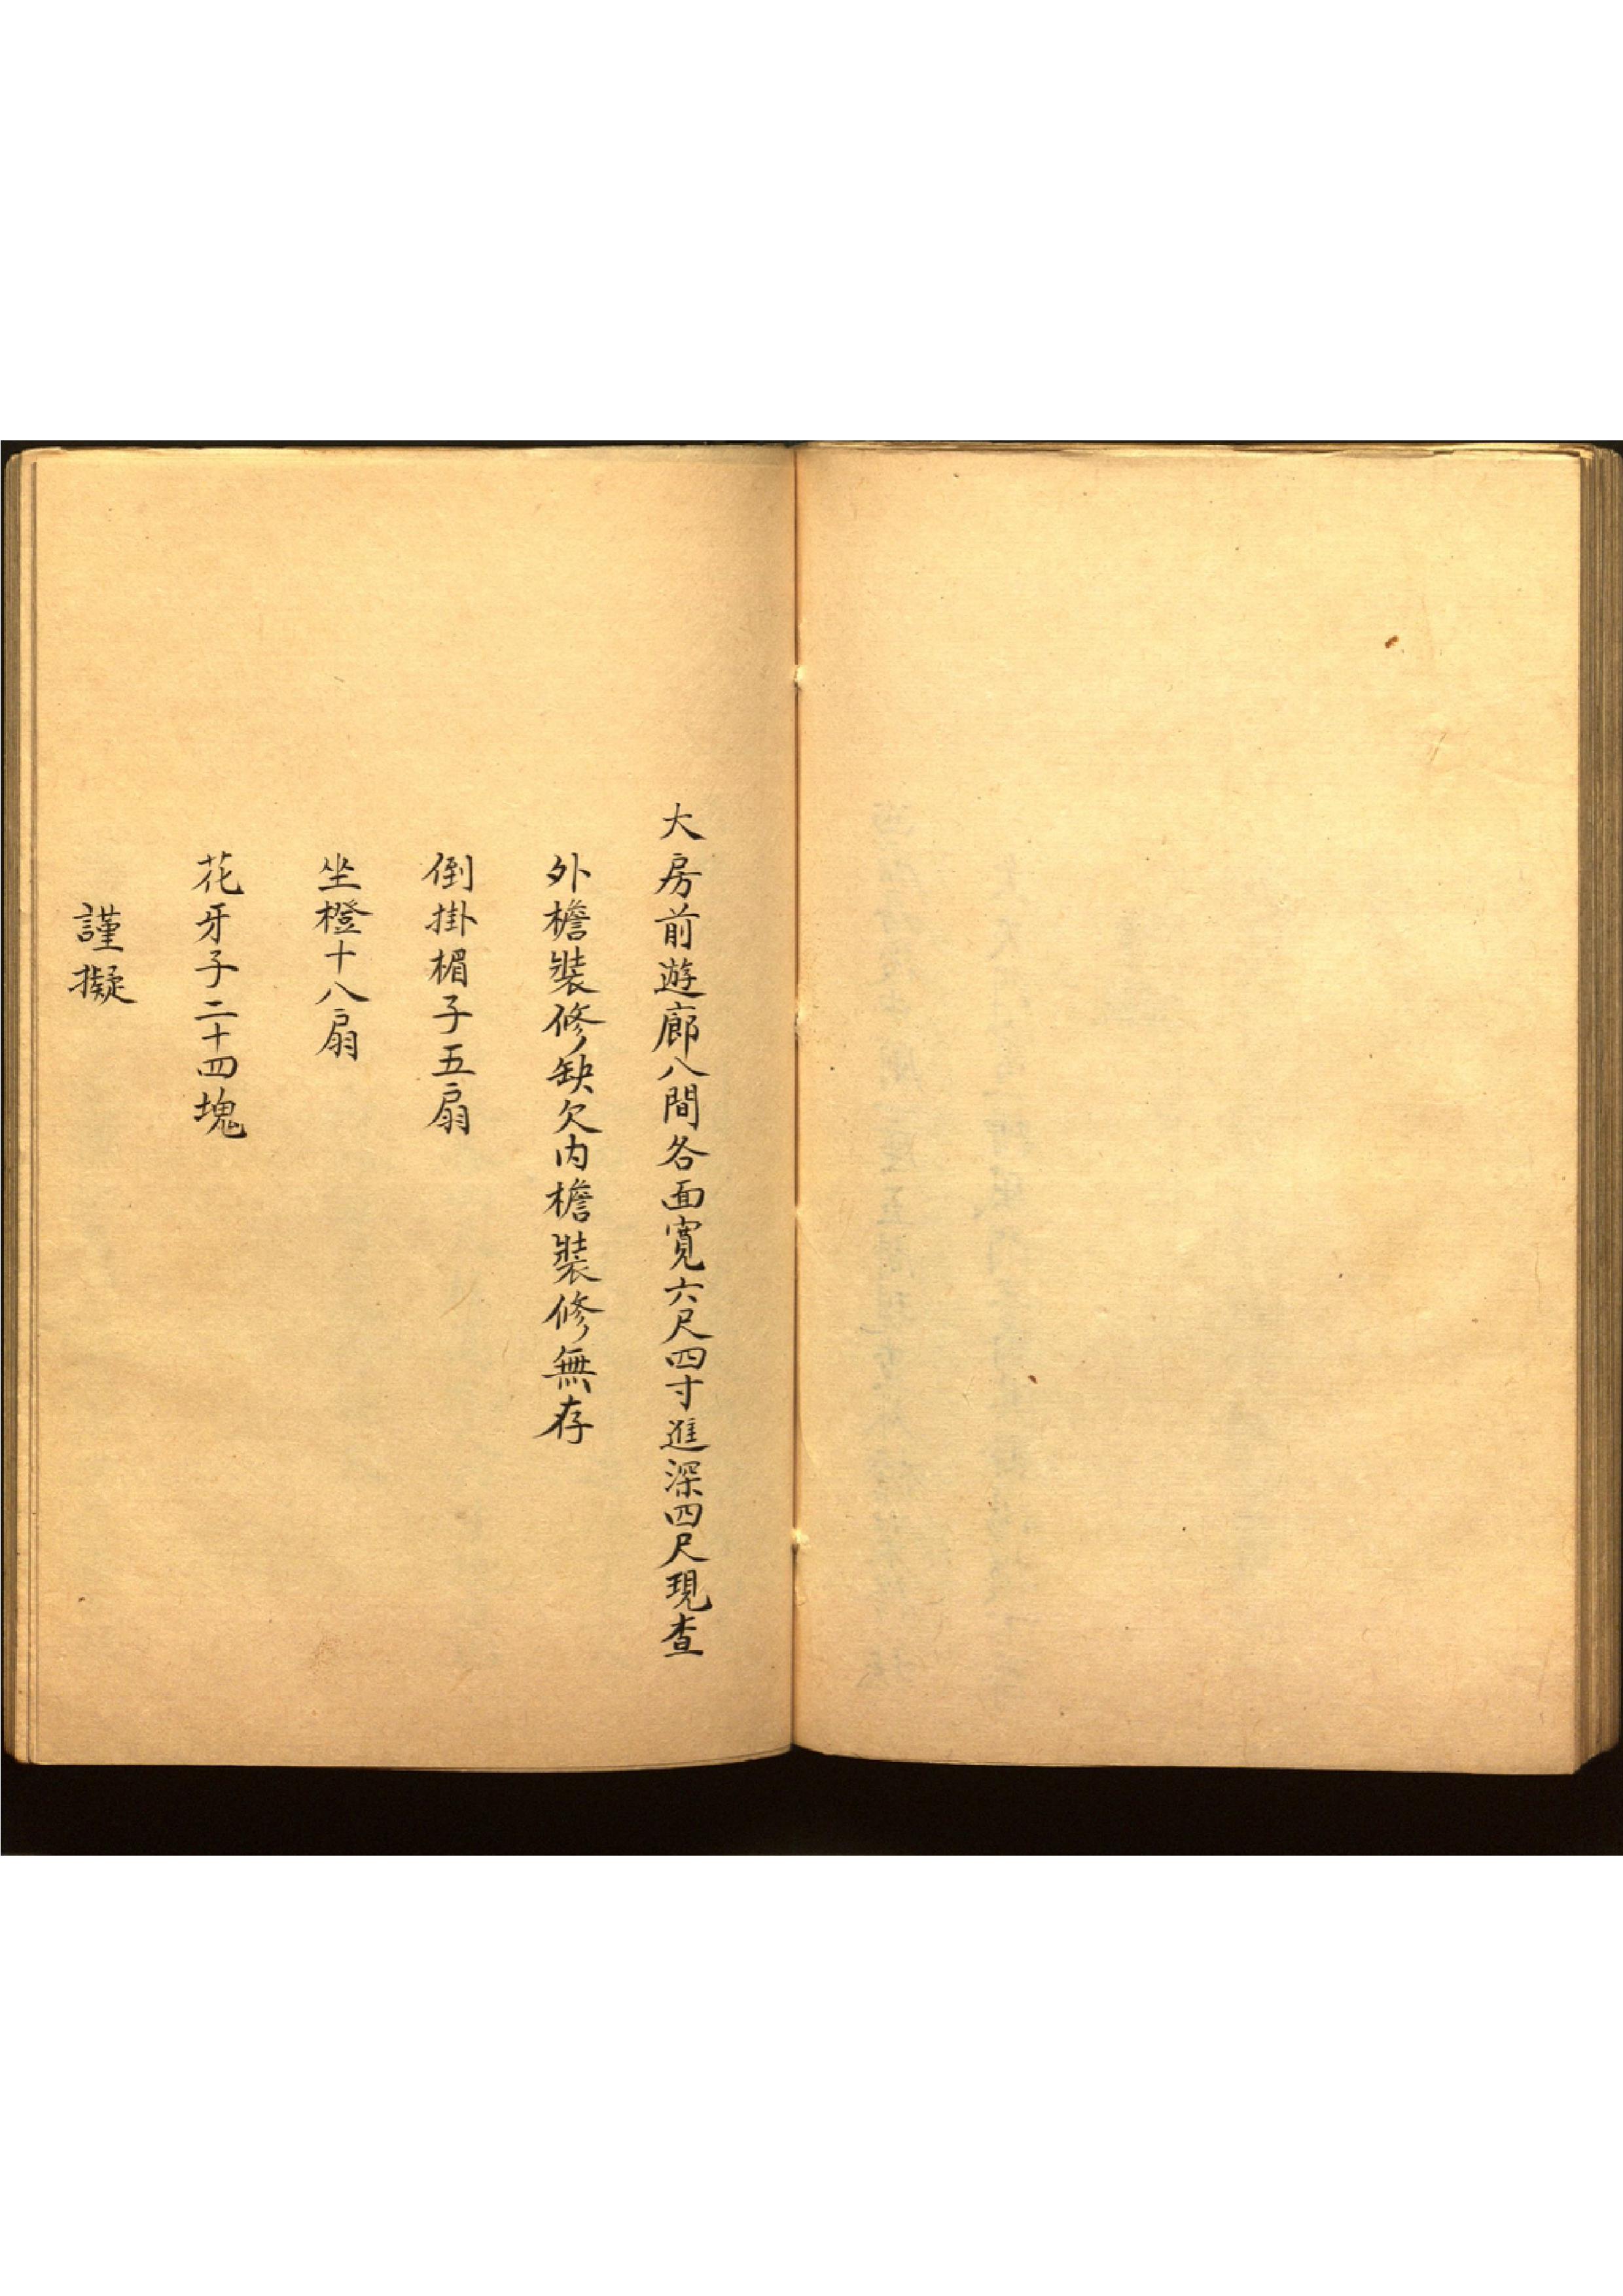 大房前遊廊八間各面寬六尺四寸進深四尺現查
外檐裝修缺欠内檐裝修無存
倒掛楣子五扇
坐橙十八扇
花牙子二十四塊
謹擬